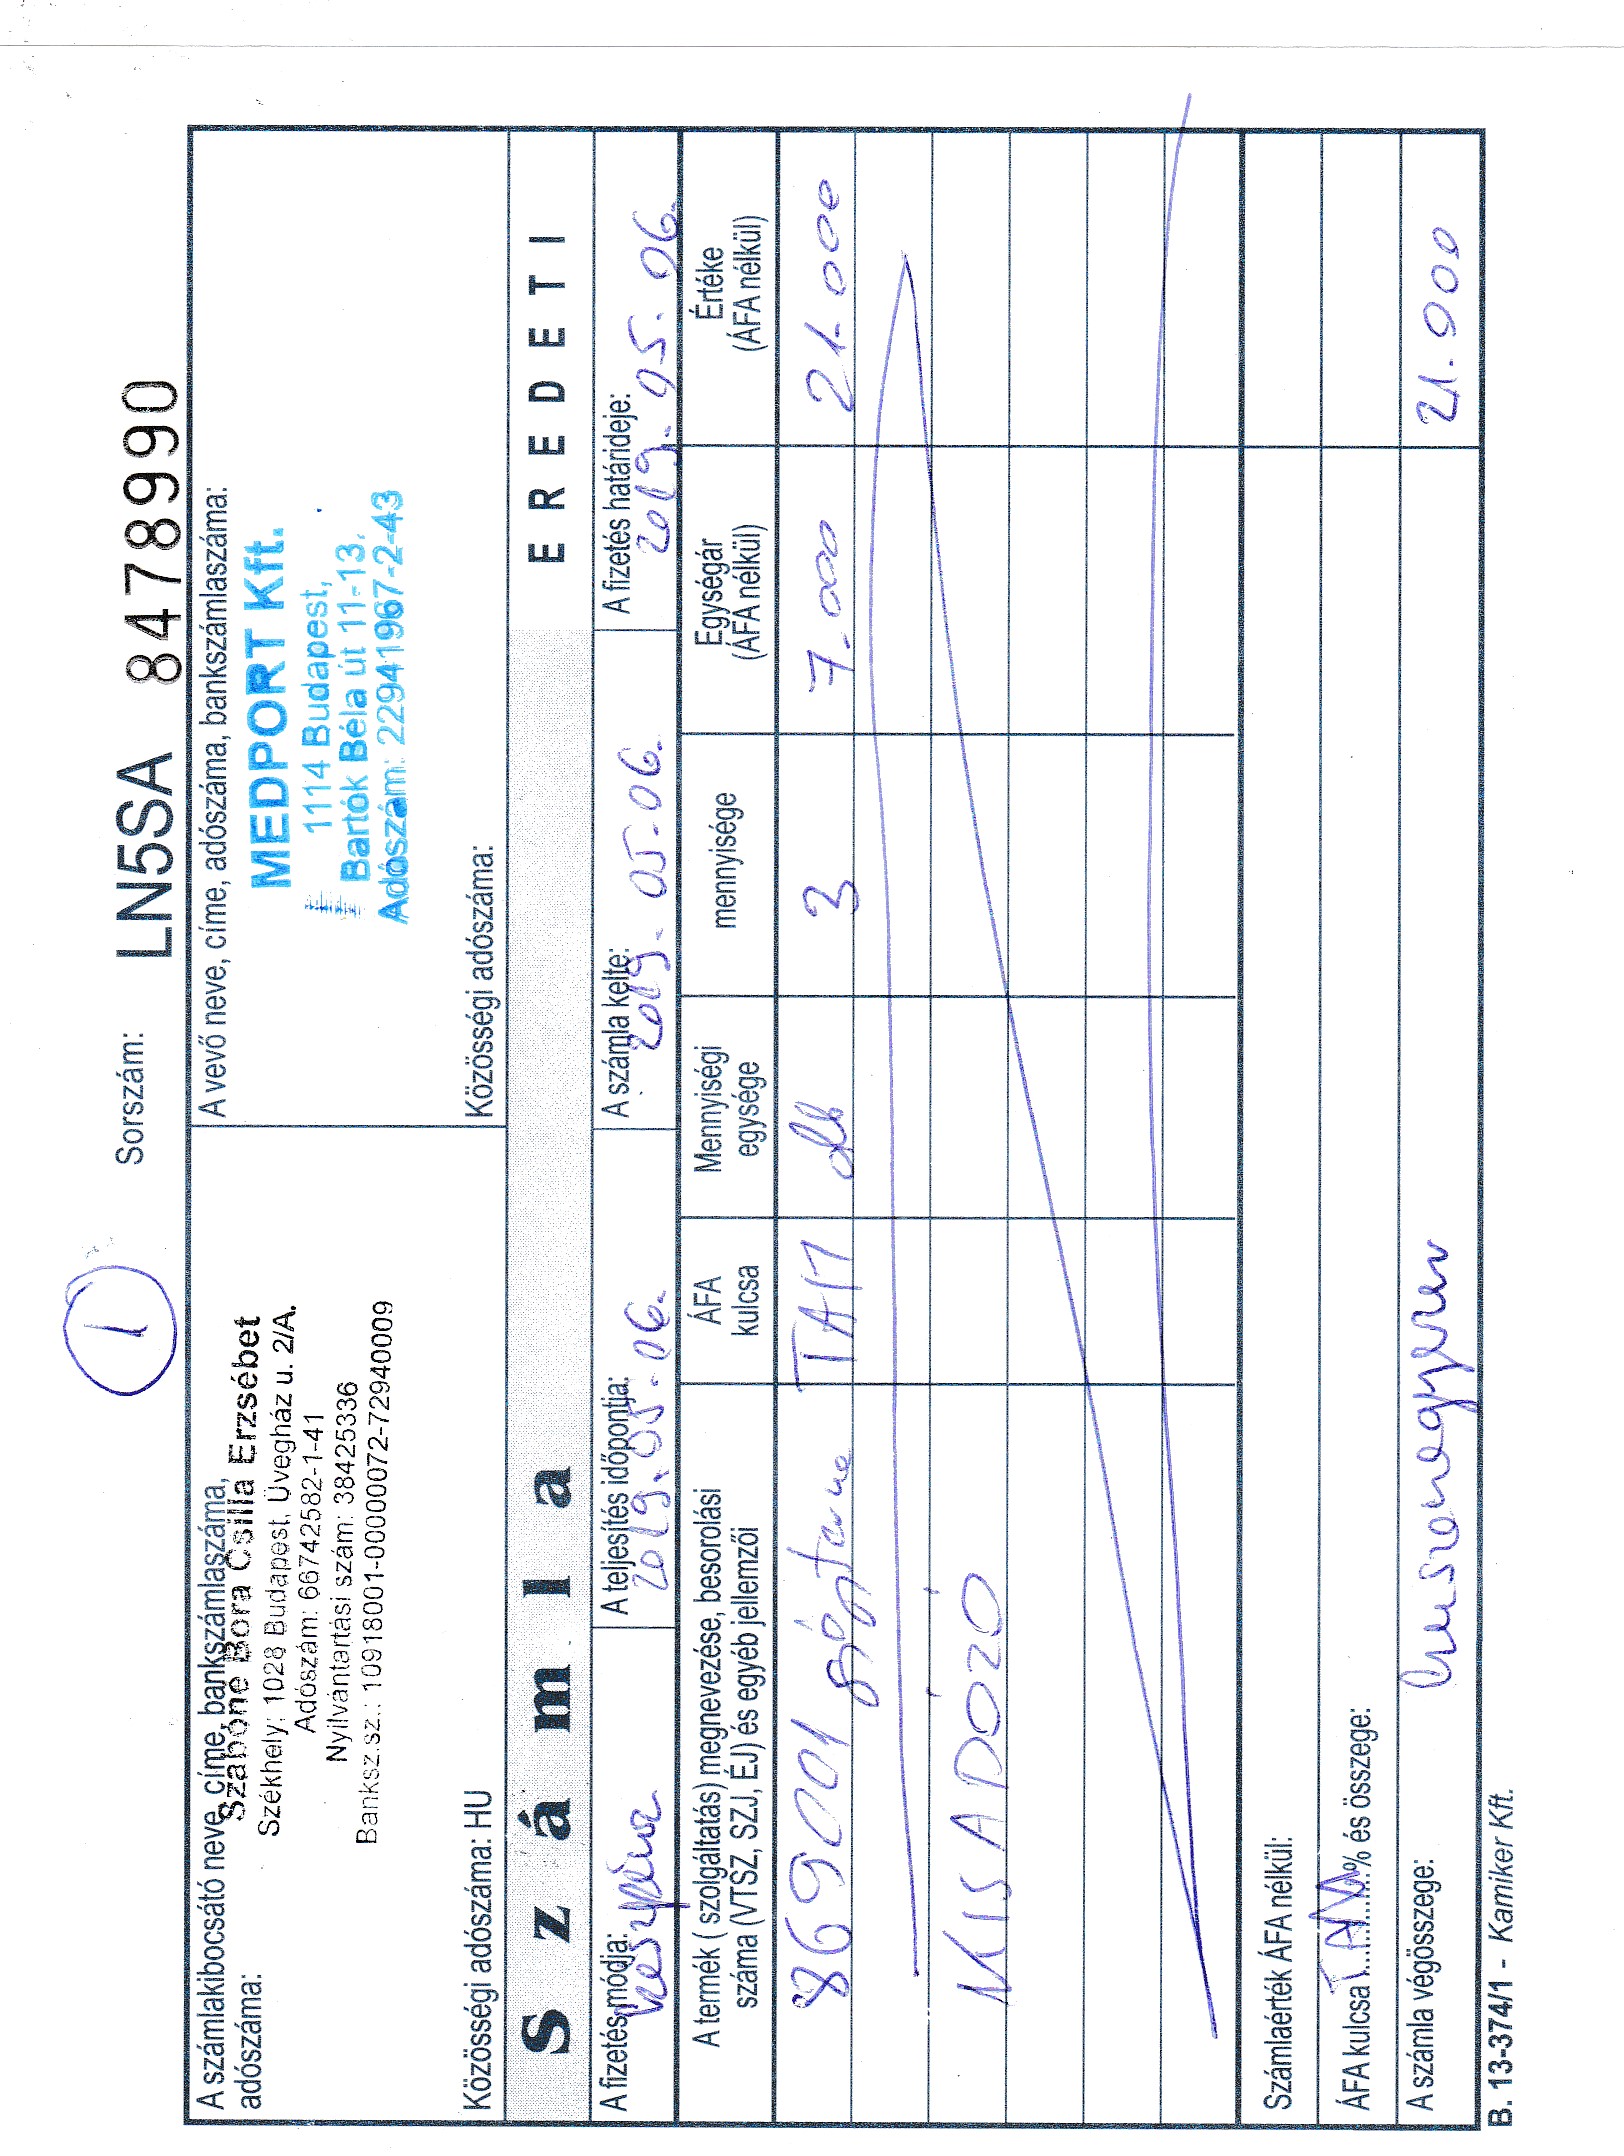 1
Sorszám: LN5SA 8478990
A számlakibocsátó neve, címe, bankszámlaszáma,
adószáma:
Szabóné Bora Csilla Erzsébet
Székhely: 1028 Budapest, Üvegház u. 2/A.
Adószám: 66742582-1-41
Nyilvántartási szám: 38425336
Banksz.sz.: 10918001-00000072-72940009
Közösségi adószáma: HU
A vevő neve, címe, adószáma, bankszámlaszáma:
MEDPORT Kft.
1114 Budapest,
Bartók Béla út 11-13.
Adószám: 22941967-2-43
Közösségi adószáma:
Számla
EREDETI
A fizetés módja:
készpénz
A teljesítés időpontja:
2019.05.06.
A számla kelte:
2019.05.06.
A fizetés határideje:
2019.05.06.
A termék ( szolgáltatás) megnevezése, besorolási
száma (VTSZ, SZJ, ÉJ) és egyéb jellemzői
ÁFA
kulcsa
Mennyiségi
egysége
mennyisége
Egységár
(ÁFA nélkül)
Értéke
(ÁFA nélkül)
869001 gyógytorna TAM db 3 7.000 21.000
KISADÓZÓ
Számlaérték ÁFA nélkül:
ÁFA kulcsa TAM % és összege:
A számla végösszege: huszonegyezer 21.000
B. 13-374/1 - Kamiker Kft.